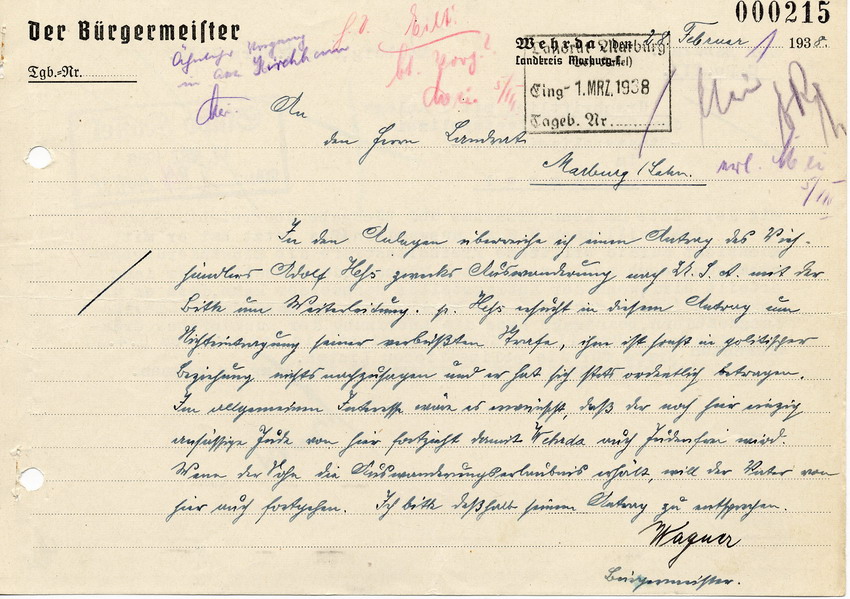 000215
Der Bürgermeister
Tgb.-Nr.
Ähnlicher Vorgang
in Akte Kirchhain
Eilt!
Wehrda, den 28. Februar 1938.
Landkreis Marburg
Landrat Marburg
Eing. - 1. MRZ. 1938
Tageb. Nr.
5/III
An
den Herrn Landrat
Marburg/Lahn.
5/III
In den Anlagen überreiche ich einen Antrag des Vieh-
händlers Adolf Heß zwecks Auswanderung nach U.S.A. mit der
Bitte um Weiterleitung. p. Heß ersucht in diesem Antrag um
Nichteintragung seiner verbüßten Strafe, ihm ist sonst in politischer
Beziehung nichts nachzusagen und er hat sich stets ordentlich betragen.
Im allgemeinen Interesse wäre es erwünscht, daß der noch hier einzig
ansässige Jude von hier fortzieht damit Wehrda auch Judenfrei wird.
Wenn der Sohn die Auswanderungserlaubnis erhält, will der Vater von
hier auch fortgehen. Ich bitte deßhalb seinem Antrag zu entsprechen.
Wagner
Bürgermeister.